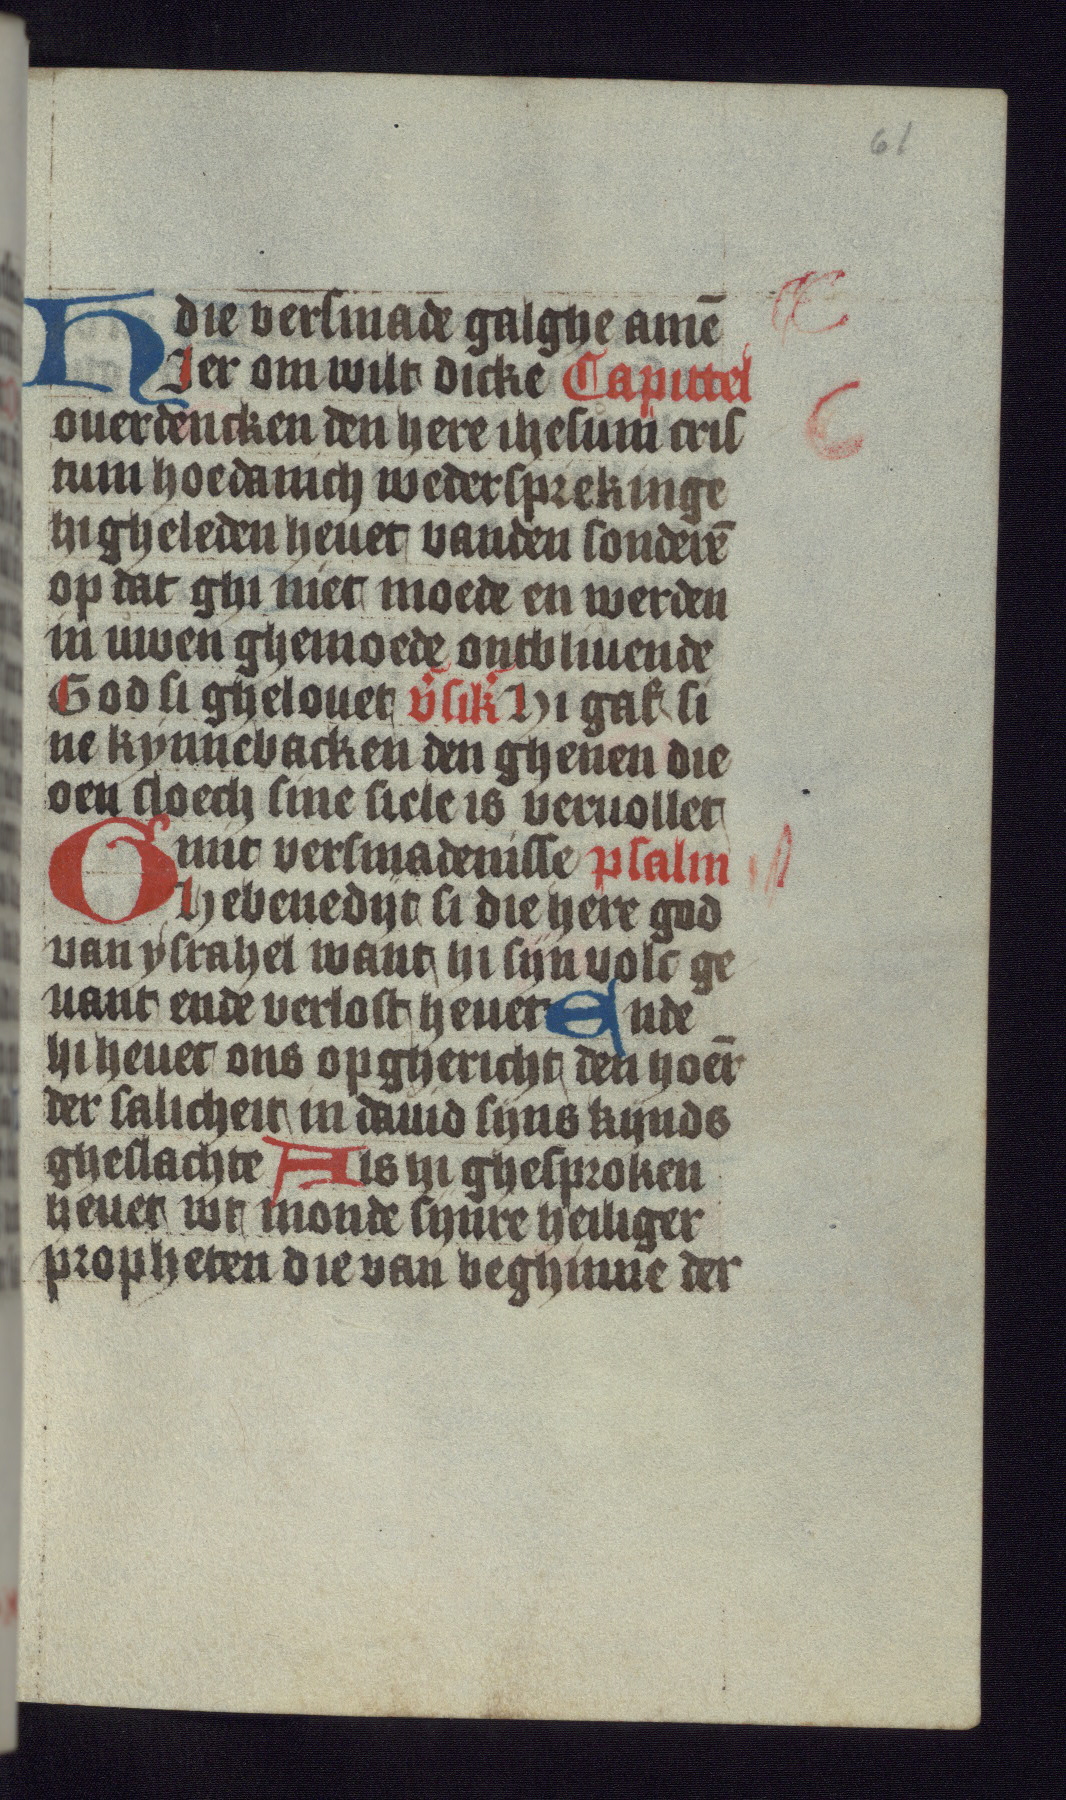 61
die versmade galghe amē
HIer om wilt dicke Capittel
ouerdencken den here ihesum cris
tum hoedanich wedersprekinge
hi gheleden heuet vanden sonderē
op dat ghi niet moede en werden
in uwen ghemoede ontbliuende
God si ghelouet v̄sik̄ Hi gaf si
ne kynnebacken den ghenen die
oen sloech sine siele is veruollet
mit versmadenisse psalm
GHebenedijt si die here god
van ysrahel want hi sijn volc ge
uant ende verlost heuet Ende
hi heuet ons opghericht den hoēr
der salicheit in dauid sijns kijnds
gheslachte Als hi ghesproken
heuet wt monde sijnre heiliger
propheten die van beghinne der